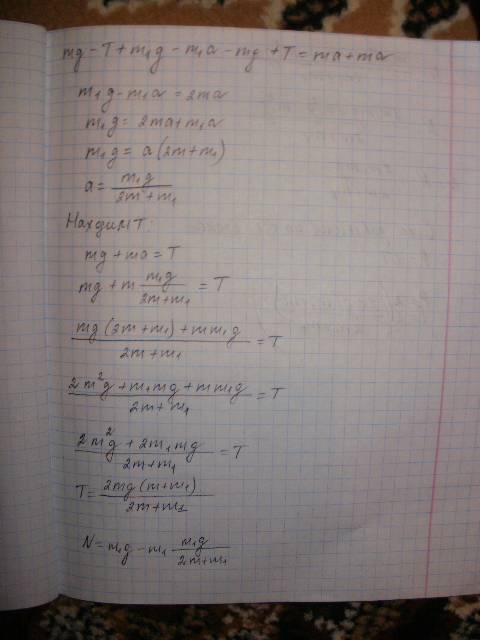 mg - T + m₁g - m₁a - mg + T = ma + ma
m₁g - m₁a = 2ma
m₁g = 2ma + m₁a
m₁g = a(2m + m₁)
a = m₁g / 2m + m₁
Находим T:
mg + ma = T
mg + m m₁g / 2m + m₁ = T
mg(2m + m₁) + mm₁g / 2m + m₁ = T
2m²g + m₁mg + mm₁g / 2m + m₁ = T
2m²g + 2m₁mg / 2m + m₁ = T
T = 2mg(m + m₁) / 2m + m₁
N = m₁g - m₁ m₁g / 2m + m₁